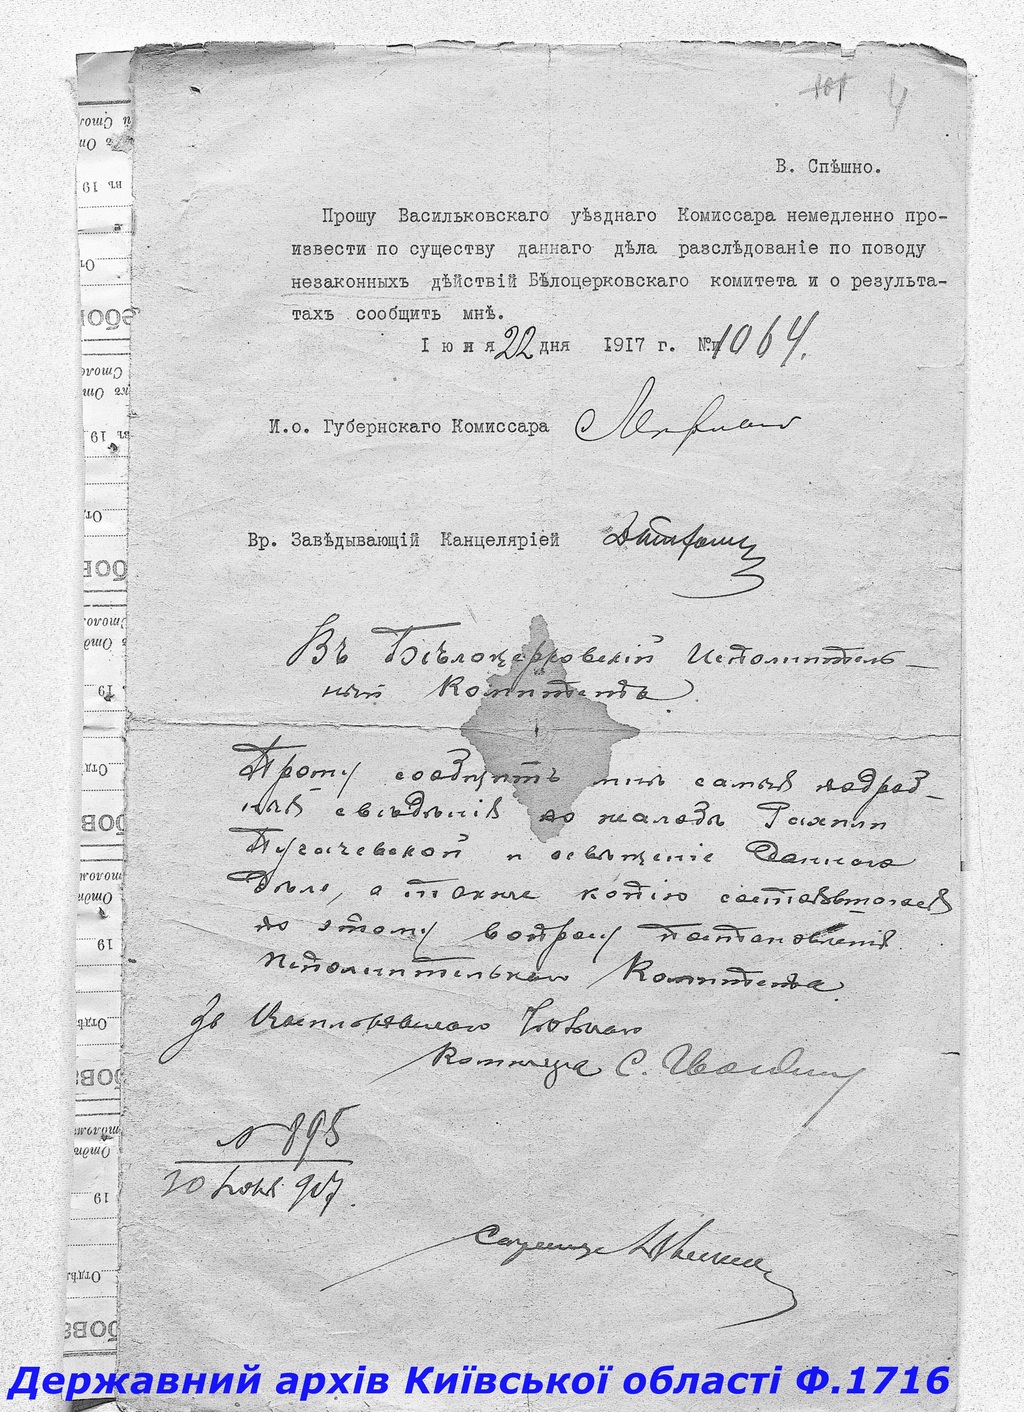 101 4
В. Спѣшно.
Прошу Васильковскаго уѣзднаго Комиссара немедленно про-
извести по существу даннаго дѣла разслѣдованіе по поводу
незаконныхъ дѣйствій Бѣлоцерковскаго комитета и о результа-
тахъ сообщить мнѣ.
Іюня 22 дня 1917 г. № 1064.
И.о. Губернскаго Комиссара
Вр. Завѣдывающій Канцеляріей
Въ Бѣлоцерковскій Исполнитель-
ный Комитетъ
Прошу сообщить мнѣ самыя подроб-
ныя свѣдѣнія по жалобѣ Рахили
Пугачевской и освѣщеніе даннаго
дѣла, а также копію состоявшагося
по этому вопросу постановленія
Исполнительнаго Комитета.
За Васильковскаго Уѣзднаго
Комиссара С.
№ 895
30 Іюня 917.
Державний архів Київської області Ф.1716